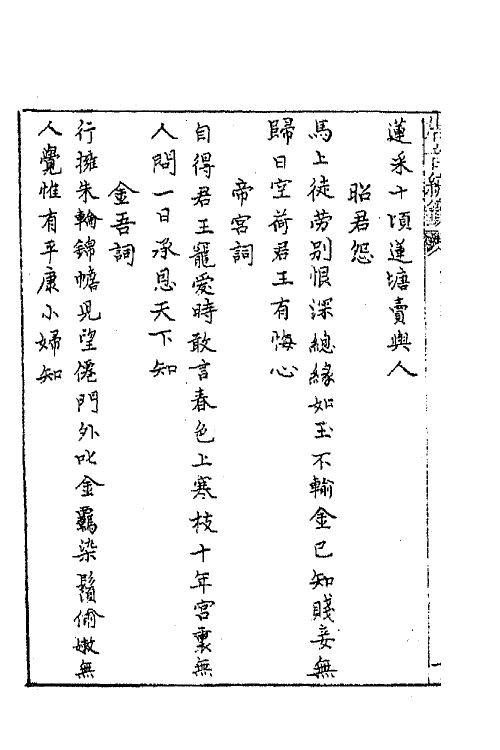 蓮采十頃蓮塘賣與人
昭君怨
馬上徒勞别恨深總緣如玉不輸金已知賤妾無
歸日空荷君王有悔心
帝宮詞
自得君王寵愛時敢言春色上寒枝十年宮裏無
人問一日承恩天下知
金吾詞
行擁朱輪錦幨兒望僊門外叱金羈染鬚偷嫩無
人覺惟有平康小婦知